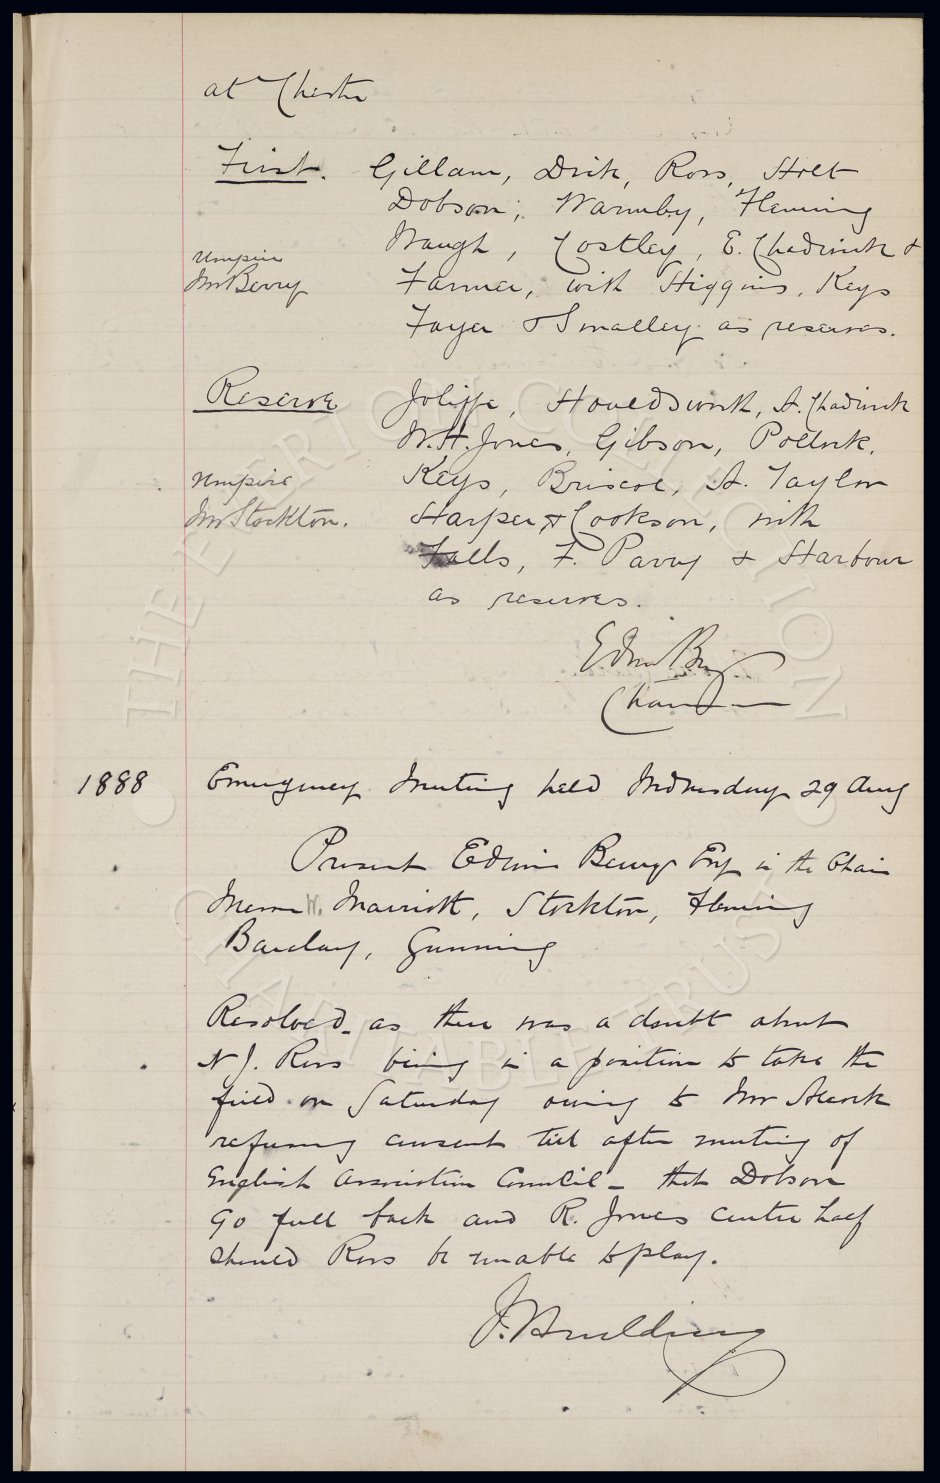 at Chester
First. Gillam, Dick, Ross, Holt
Dobson, Warmby, Fleming
Waugh, Costley, E. Chadwick &
Umpire
Mr Berry
Farmer, with Higgins, Keys
Fayer & Smalley as reserves.
Reserve Joliffe, Houldsworth, A. Chadwick
W. H. Jones, Gibson, Pollock,
Umpire
Keys, Briscoe, A. Taylor
Mr Stockton.
Harper & Cookson, with
Falls, F. Parry & Harbour
as reserves.
Edwin Berry
Chairman
1888 Emergency Meeting held Wednesday 29 Aug
Present Edwin Berry Esq in the Chair
Messrs H. Marriott, Stockton, Fleming
Barclay, Gunning
Resolved - as there was a doubt about
N. J. Ross being in a position to take the
field on Saturday owing to Mr Alcock
refusing consent till after meeting of
English Association Council - that Dobson
go full back and R. Jones centre half
should Ross be unable to play.
THE EVERTON COLLECTION
CHARITABLE TRUST